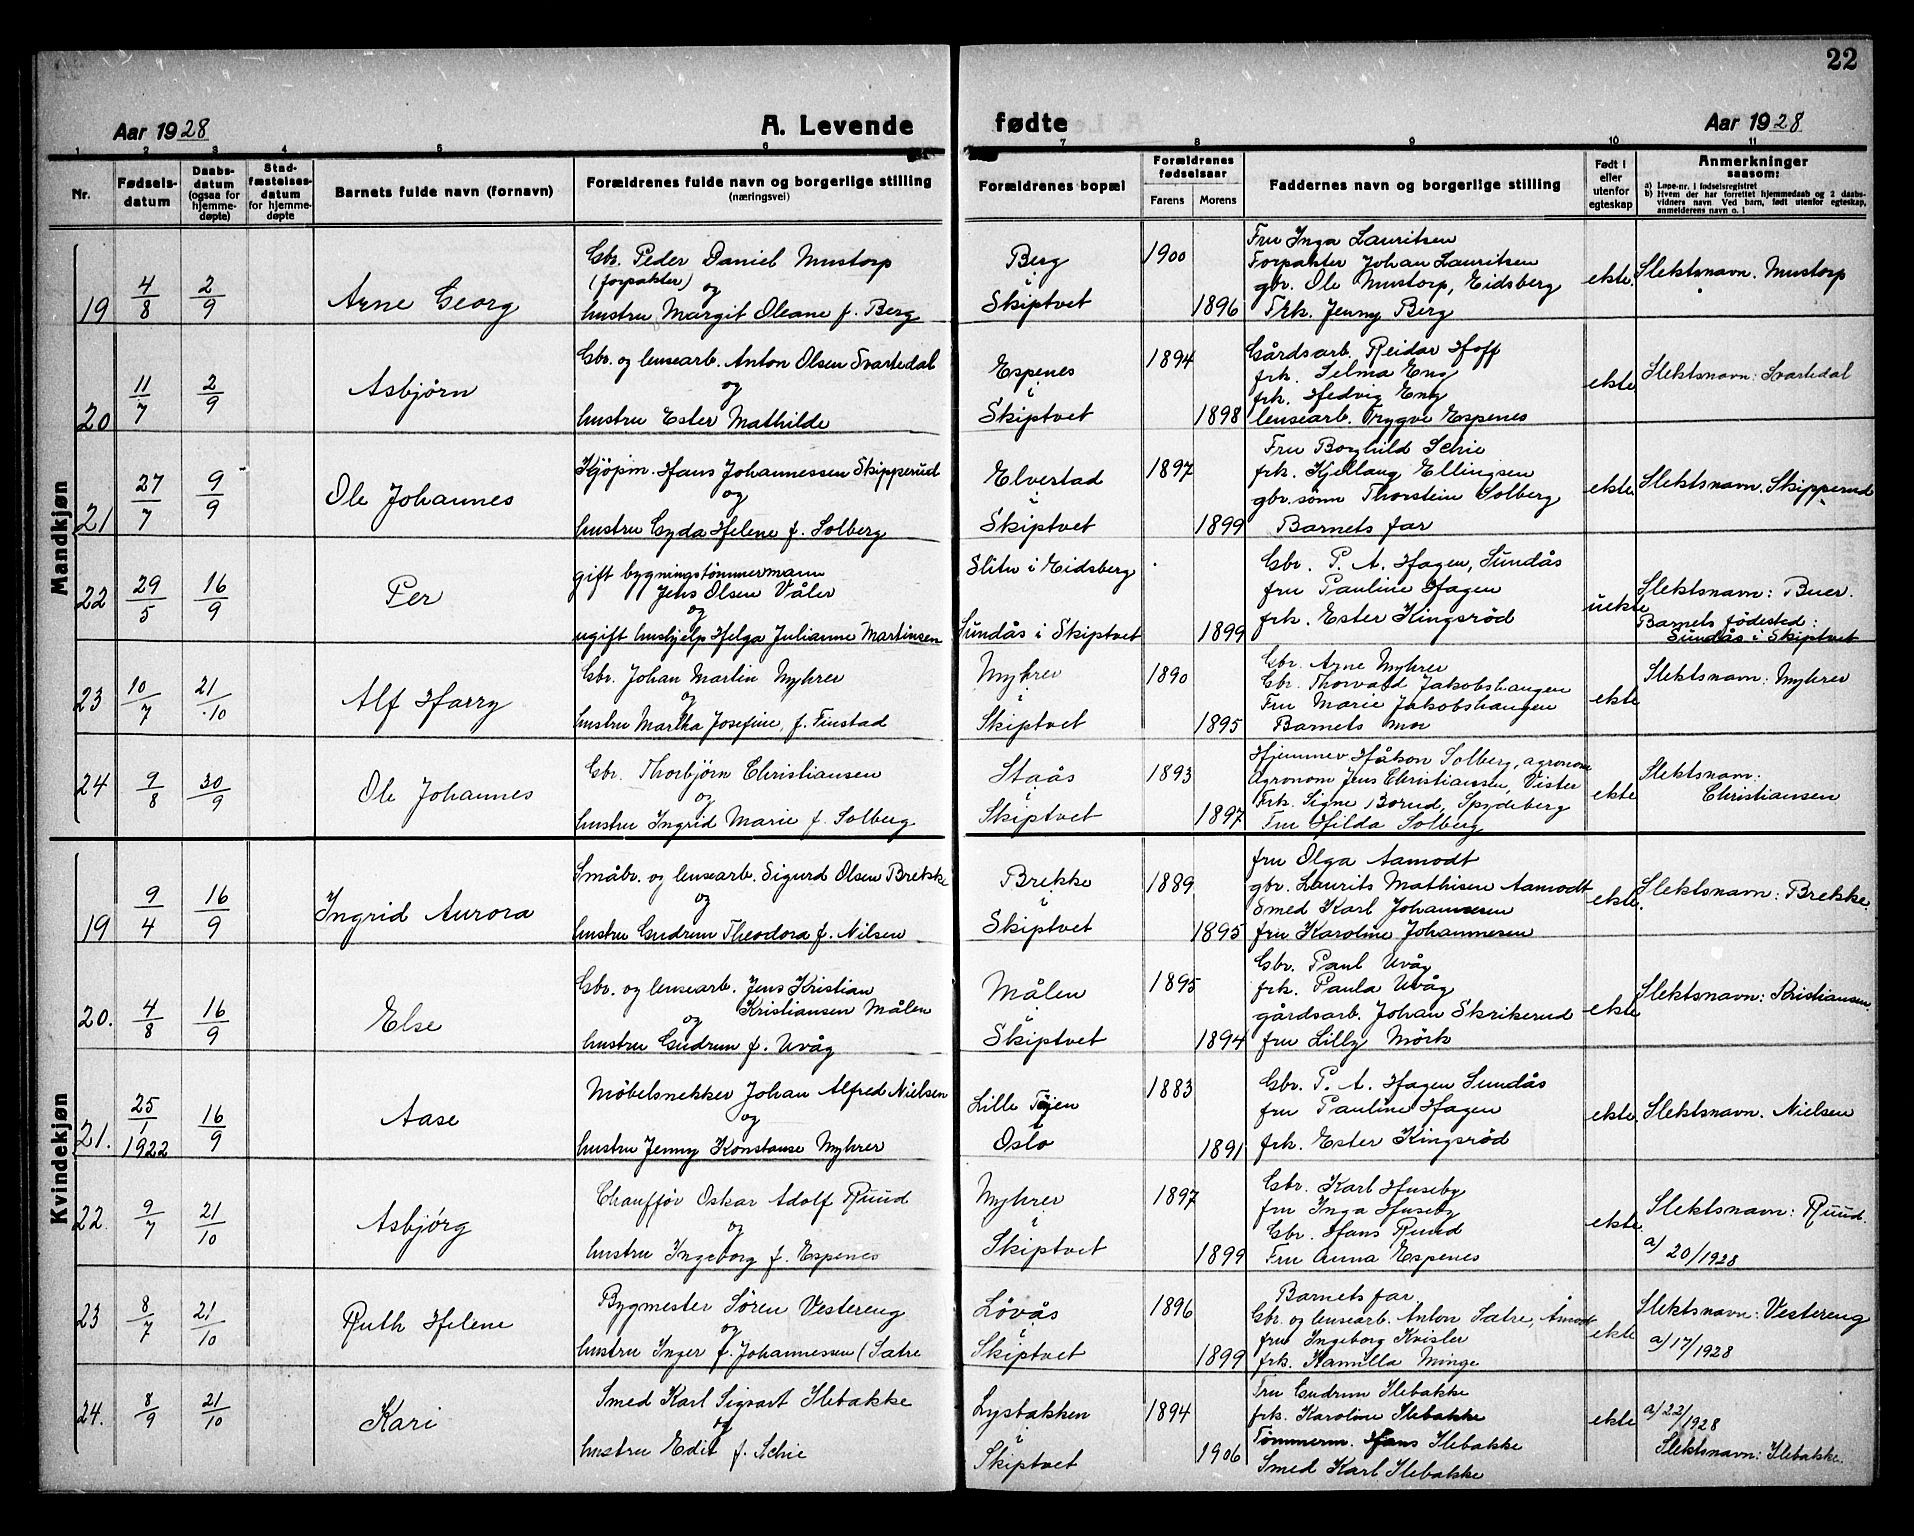 22
Aar 1928
A. Levende
fødte
Aar 1928
1 2 3 4 5 6 7 8 9 10 11
Nr.
Fødsels-
datum
Daabs-
datum
(ogsaa for
hjemme-
døpte)
Stad-
fæstelses-
datum
for hjemme-
døpte
Barnets fulde navn (fornavn)
Forældrenes fulde navn og borgerlige stilling
(næringsvei)
Forældrenes bopæl
Forældrenes
fødselsaar
Farens Morens
Faddernes navn og borgerlige stilling
Født i
eller
utenfor
egteskap
Anmerkninger
saasom:
a) Løpe-nr. i fødselsregistret
b) Hvem der har forrettet hjemmedaab og 2 daabs-
vidners navn. Ved barn, født utenfor egteskap,
anmelderens navn o. l
Mandkjøn
19 4/8 2/9 Arne Georg
Gbr. Peder Daniel Mustorp
(forpakter) og
hustru Margit Oleane f. Berg
Berg
i
Skiptvet
1900
1896
Fru Inga Lauritsen
Forpakter Johan Lauritsen
gbr. Ole Mustorp, Eidsberg
Frk. Jenny Berg
ekte.
Slektsnavn. Mustorp
20 11/7 2/9 Asbjørn
Gbr. og lensearb. Anton Olsen Svartedal
og
hustru Ester Mathilde
Espenes
i
Skiptvet
1894
1898
Gårdsarb. Reidar Hoff
frk. Selma Eng
frk. Hedvig Eng
lensearb. Trygve Espenes
ekte
Slektsnavn: Svartedal
21 27/7 9/9 Ole Johannes
Kjøpm. Hans Johannessen Skipperud
og
hustru Gyda Helene f. Solberg
Elvertad
i
Skiptvet
1897
1899
Fru Borghild Schie
frk. Kjellaug Ellingsen
gbr.sønn Thorstein Solberg
Barnets far
ekte
Slektsnavn. Skipperud
22 29/5 16/9 Per
gift bygningstømmermann
Jens Olsen Våler
og
ugift hushjelp Helga Julianne Martinsen
Slitu i Eidsberg
Sundås i Skiptvet
1899
Gbr. P. A. Hagen, Sundås
fru Pauline Hagen
frk. Ester Kingsrød
uekte
Slektsnavn: Buer.
Barnets fødested:
Sundås i Skiptvet
23 10/7 21/10 Alf Harry
Gbr. Johan Martin Myhrer
og
hustru Martha Josefine, f. Finstad
Myhrer
i
Skiptvet
1890
1895
Gbr. Arne Myhrer
Gbr. Thorvald Jakobshaugen
Fru Marie Jakobshaugen
Barnets mor
ekte
Slektsnavn: Myhrer
24 9/8 30/9 Ole Johannes
Gbr. Thorbjørn Christiansen
og
hustru Ingrid Marie f. Solberg
Staås
i
Skiptvet
1893
1897
Hjemmev. Håkon Solberg, agronom
Agronom Jens Christiansen, Vister
Frk. Signe Borud, Spydeberg
Fru Hilda Solberg
ekte
Slektsnavn:
Christiansen
Kvindekjøn
19 9/4 16/9 Ingrid Aurora
Småbr. og lensearb. Sigurd Olsen Brekke
og
hustru Gudrun Theodora f. Nilsen
Brekke
i
Skiptvet
1889
1895
fru Olga Aamodt
gbr. Laurits Mathisen Aamodt
Smed Karl Johannesen
fru Karoline Johannesen
ekte.
Slektsnavn: Brekke.
20. 4/8 16/9 Else
Gbr. og lensearb. Jens Kristian
Kristiansen Målen
og
hustru Gudrun f. Uvåg
Målen
i
Skiptvet
1895
1894
Gbr. Paul Uvåg
frk. Paula Uvåg
gårdsarb. Johan Skrikerud
fru Lilly Mørk
ekte
Slektsnavn: Kristiansen
21. 25/1 1922 16/9 Aase
Møbelsnekker Johan Alfred Nielsen
og
hustru Jenny Konstanse Myhrer
Lille Tøyen
Oslo
1883
1891
Gbr. P. A. Hagen Sundås
fru Pauline Hagen
frk. Ester Kingsrød
ekte
Slektsnavn. Nielsen
22. 9/7 21/10 Asbjørg
Chauffør Oskar Adolf Ruud
og
hustru Ingeborg f. Espenes
Myhrer
i
Skiptvet
1897
1899
Gbr. Karl Huseby
fru Inga Huseby
Gbr. Hans Ruud
Fru Anna Espenes
ekte
Slektsnavn: Ruud.
a/ 20/1928
23 8/7 21/10 Ruth Helene
Bygmester Søren Vestereng
og
hustru Inger f. Johannessen (Sætre
Løvås
i
Skiptvet
1896
1899
Barnets far
Gbr. og lensearb. Anton Sætre, Åmodt
fru Ingeborg Kvisler
frk. Kamilla Minge
ekte
Slektsnavn: Vestereng
a/ 17/1928
24. 8/9 21/10 Kari
Smed Karl Sigvart Ilebakke
og
hustru Edit f. Schie
Lysbakken
i
Skiptvet
1894
1906
Fru Gudrun Ilebakke
frk. Karoline Ilebakke
Tømmerm. Hans Ilebakke
Smed Karl Ilebakke
ekte
a/ 22/1928
Slektsnavn: Ilebakke.